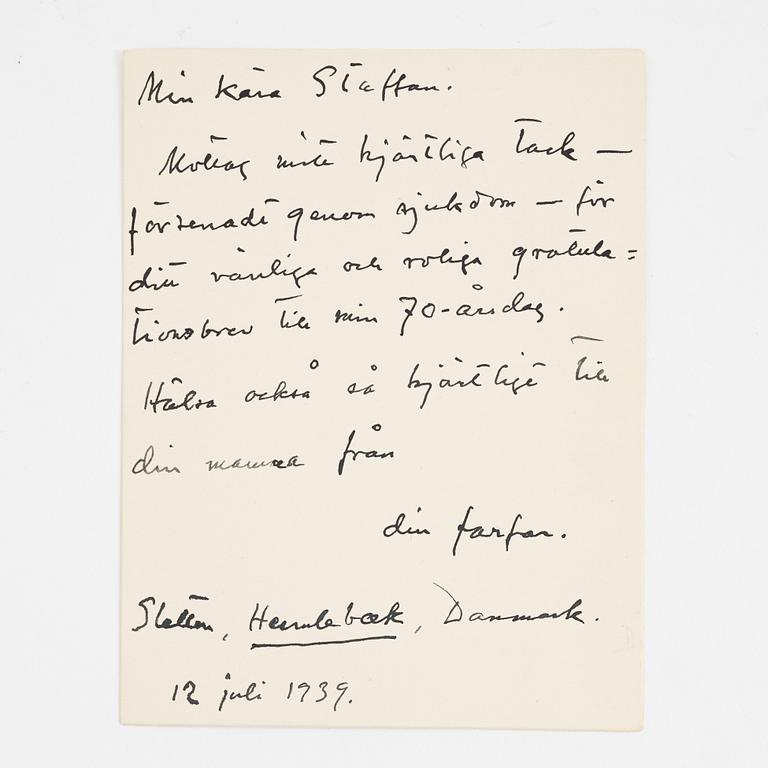 Min kära Staffan.
Mottag mitt hjärtliga tack —
försenadt genom sjukdom — för
ditt vänliga och roliga gratula=
tionsbrev till min 70-årsdag.
Hälsa också så hjärtligt till
din mamma från
din farfar.
Sletten, Humlebæk, Danmark.
12 juli 1939.